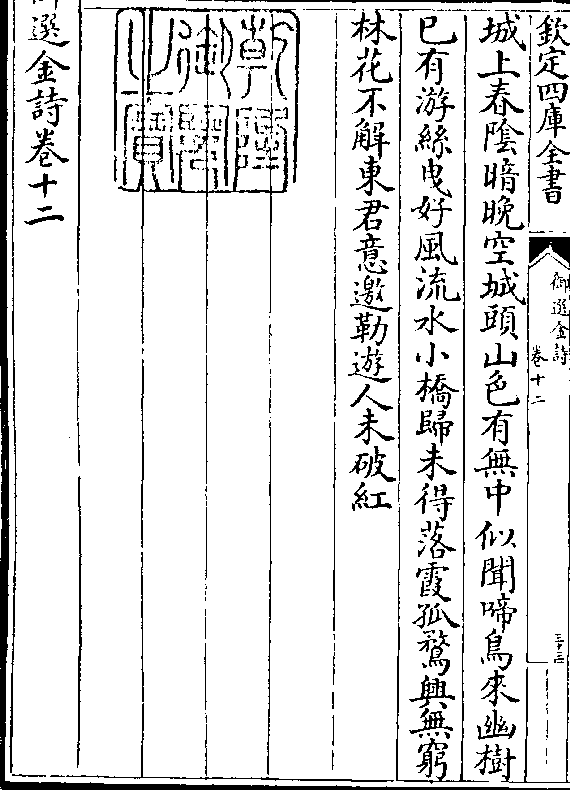 欽定四庫全書
御選金詩
卷十二
三十三
城上春陰暗晚空城頭山色有無中似聞啼鳥來幽樹
已有游絲曳好風流水小橋歸未得落霞孤鶩興無窮
林花不解東君意邀勒遊人未破紅
乾隆御覽之寶
御選金詩卷十二